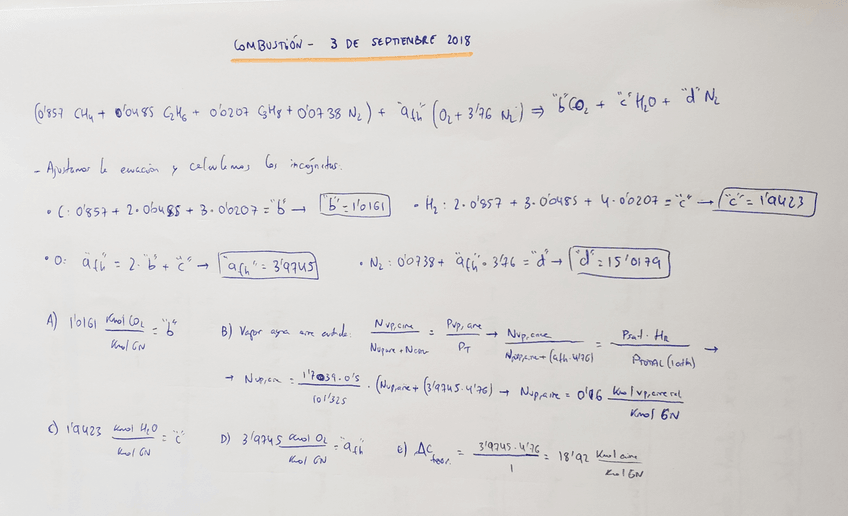 COMBUSTIÓN - 3 DE SEPTIEMBRE 2018
(0'857 CH4 + 0'0485 C2H6 + 0'0207 C3H8 + 0'0738 N2) + "afh" (O2 + 3'76 N2) ⇒ "b"CO2 + "c"H2O + "d" N2
- Ajustamos la ecuación y calculamos las incógnitas.
• C: 0'857 + 2·0'0485 + 3·0'0207 = "b" → "b" = 1'0161 • H2: 2·0'857 + 3·0'0485 + 4·0'0207 = "c" → "c" = 1'9423
• O: "afh" = 2·"b" + "c" → "afh" = 3'9745 • N2: 0'0738 + "afh"·3'76 = "d" → "d" = 15'0179
A) 1'0161 Kmol CO2 / Kmol GN = "b" B) Vapor agua aire Nvp,aire / = Pvp,aire / PT → Nvp,aire / Nvp,aire + (afh·4'76) = Psat·HR / PTOTAL (1atm) →
→ Nvp,aire = 1'7039·0'5 / 101'325 · (Nvp,aire + (3'9745·4'76) → Nvp,aire = 0'16 Kmol vp,aire / Kmol GN
C) 1'9423 Kmol H2O / Kmol GN = "c" D) 3'9745 Kmol O2 / Kmol GN = "afh" e) Ac teor. = 3'9745·4'76 / 1 = 18'92 Kmol aire / Kmol GN